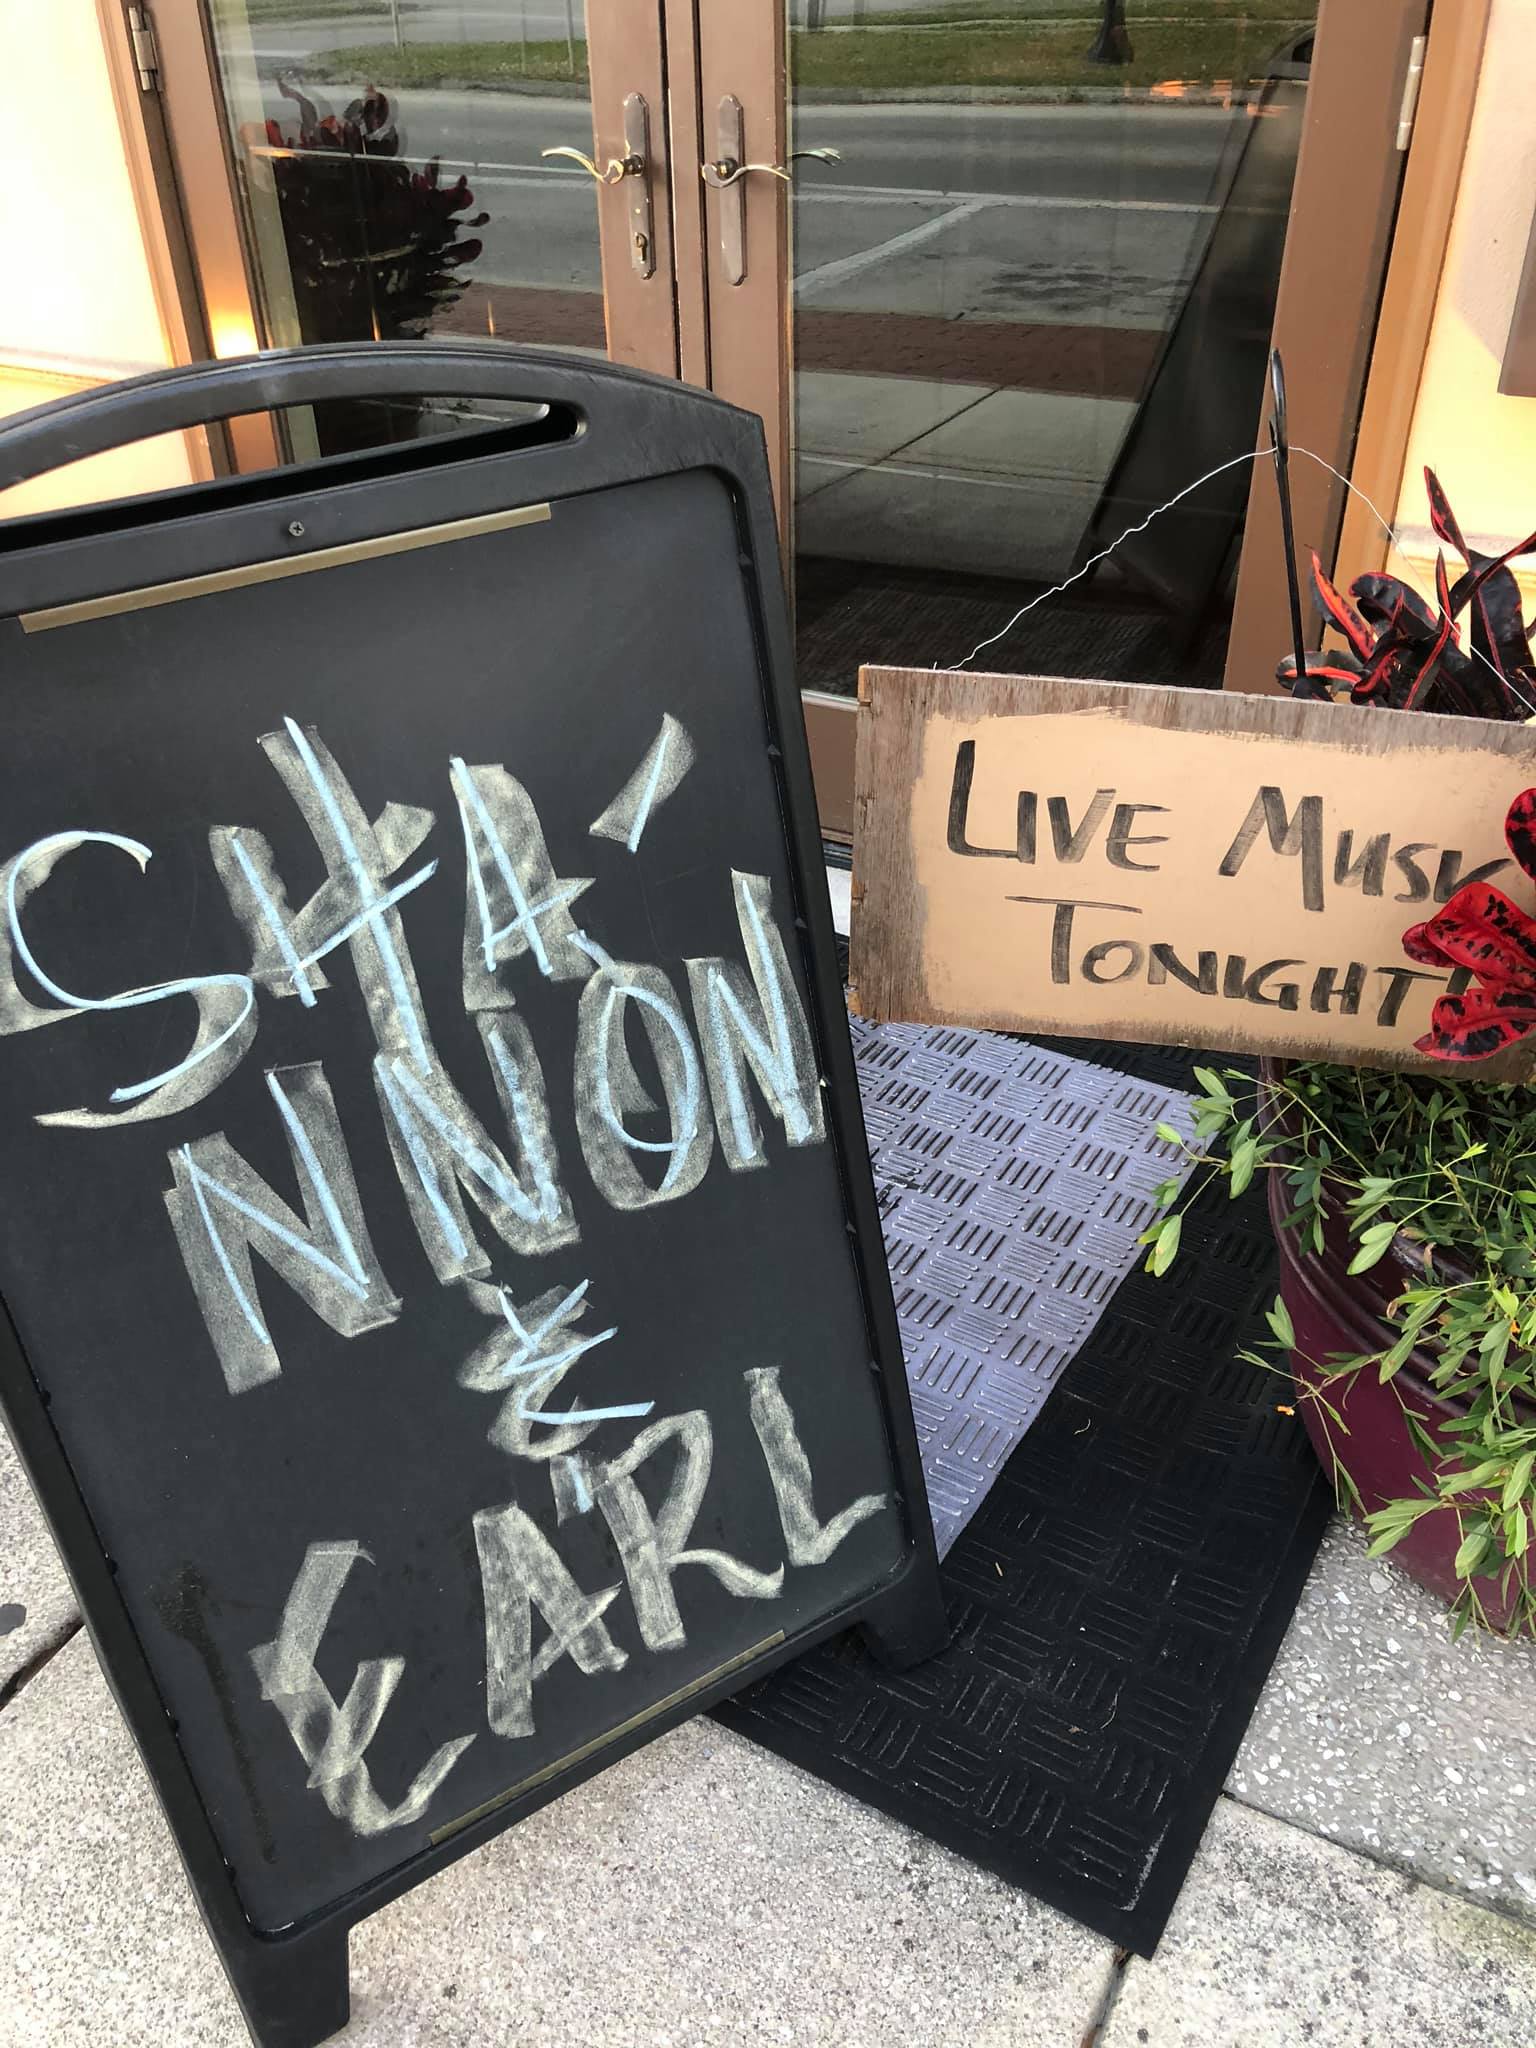 SHA-
NNON
&
EARL
LIVE MUSIC
TONIGHT!